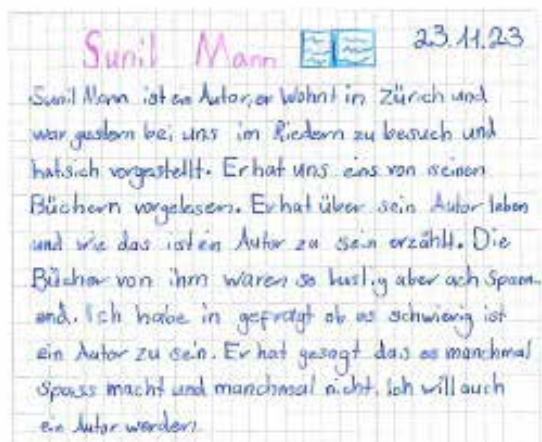 Sunil Mann 23.11.23
Sunil Mann ist en Autor, er Wohnt in Zürich und
war gestern bei uns im Riedern zu besuch und
hat sich vorgestellt. Er hat uns eins von seinen
Büchern vorgelesen. Er hat über sein Autor leben
und wie das ist ein Autor zu sein erzählt. Die
Bücher von ihm waren so lustig aber ach Spann-
end. Ich habe in gefragt ob es schwierig ist
ein Autor zu sein. Er hat gesagt das es manchmal
Spass macht und manchmal nicht. Ich will auch
ein Autor werden.